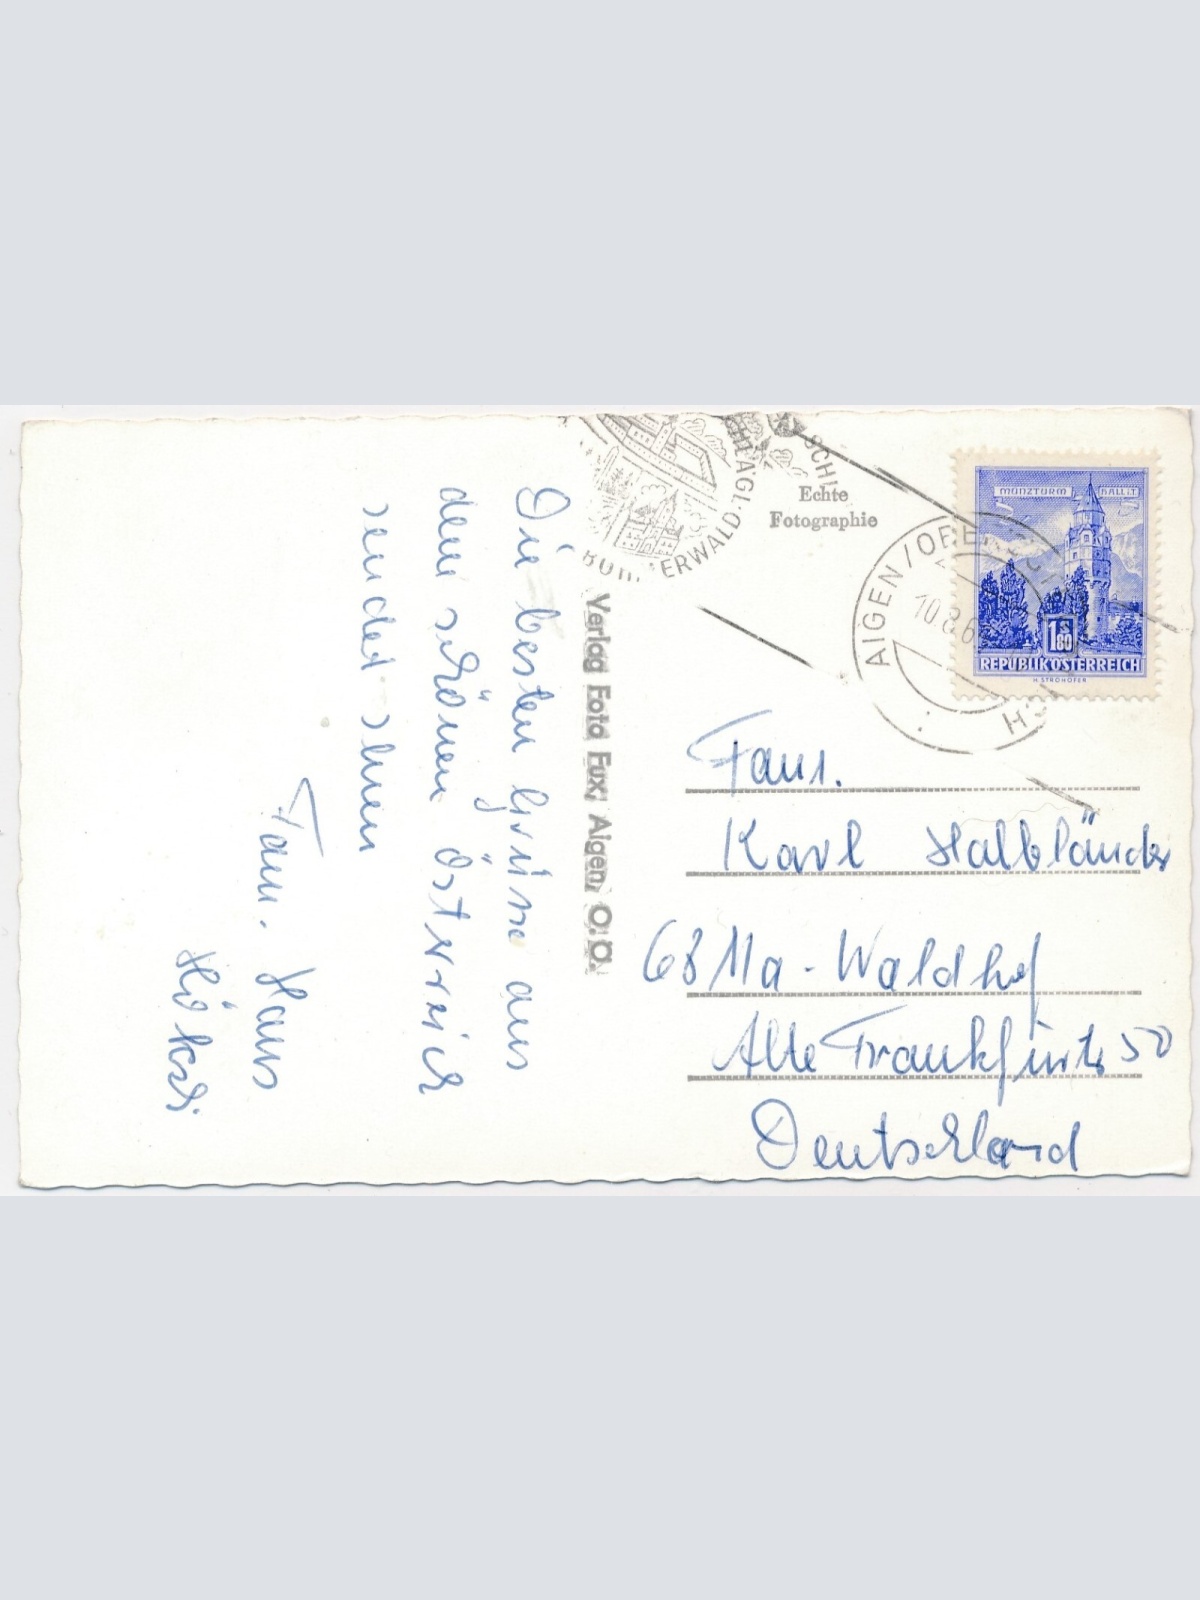 Die besten Grüße aus
dem schönen Östrreich
sendet Ihnen
Fam. Hans
Verlag Foto Fux, Aigen, O.Ö.
ERWALD
SCHLÄGL
SCHL
Echte
Fotographie
AIGEN/OBE
10.8.6
MÜNZTURM HALL I.T.
1S80
REPUBLIK ÖSTERREICH
H. STROHOFER
Fam.
Karl Halbländer
68 Ma-Waldhof
Alte Frankfurter 50
Deutschland